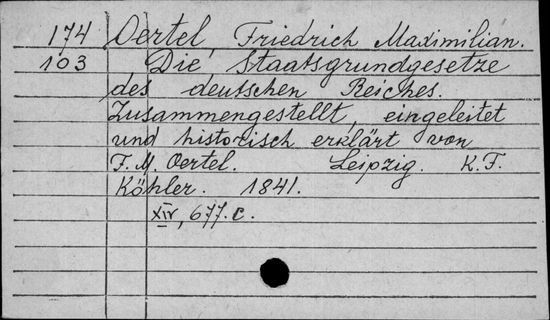 174 Oertel, Friedrich Maximilian.
103 Die Staatsgrundgesetze
des deutschen Reiches.
Zusammengestellt, eingeleitet
und historisch erklärt von
F. M. Oertel. Leipzig. K. F.
Köhler. 1841.
XIV, 677. c.